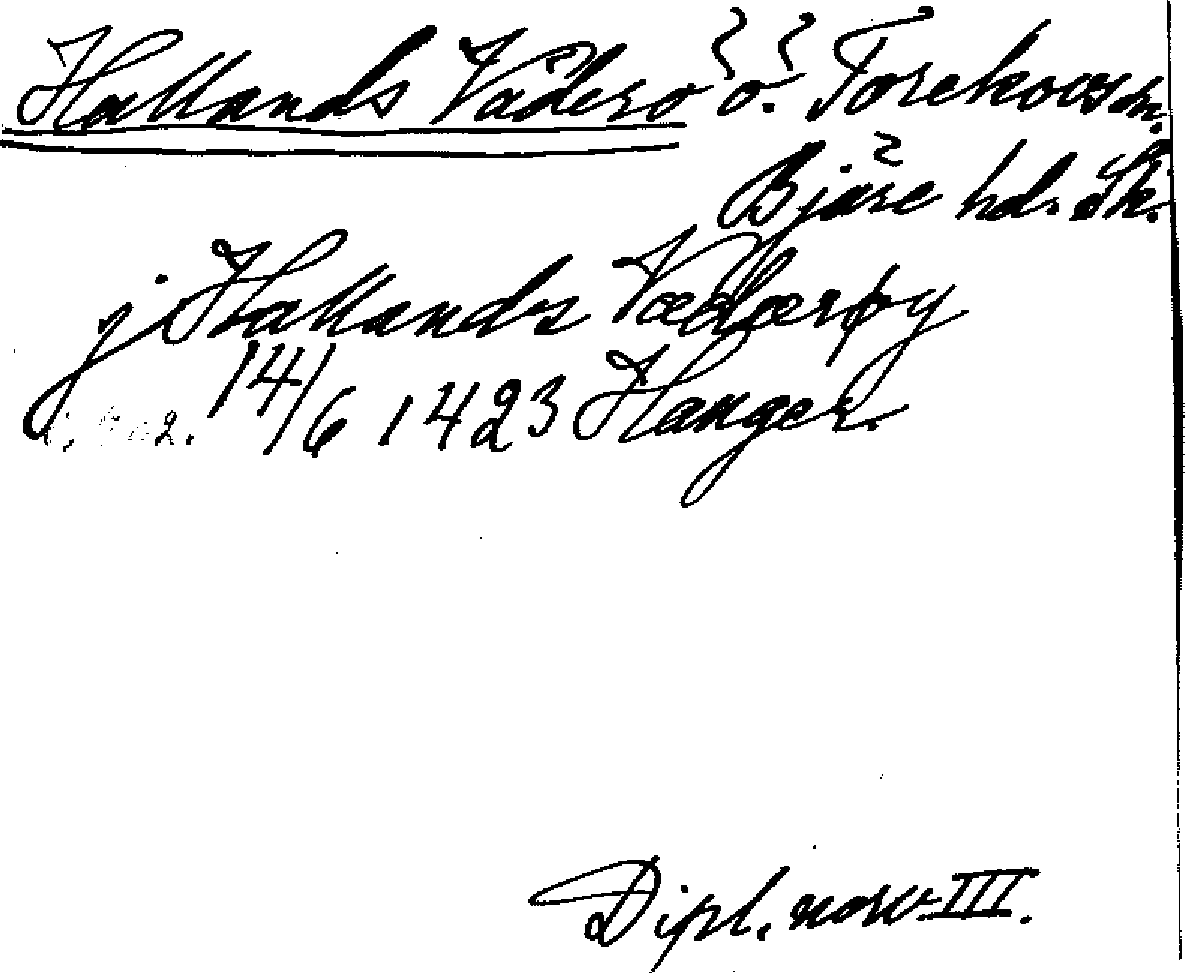 Hallands Väderö ö. Torekovs sn.
Bjäre hd. Sk.
j Hallands Vædærøy
14/6 1423 Hanger.
Dipl. norv. III.